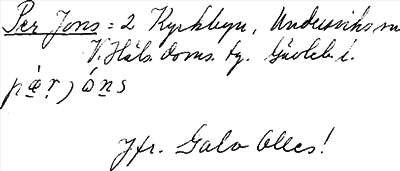 Per Jons = 2 Kyrkbyn, Undersviks sn
V. Häls. doms. tg. Gävleb. l.
pǽr, jóns
Jfr. Galv Olles!